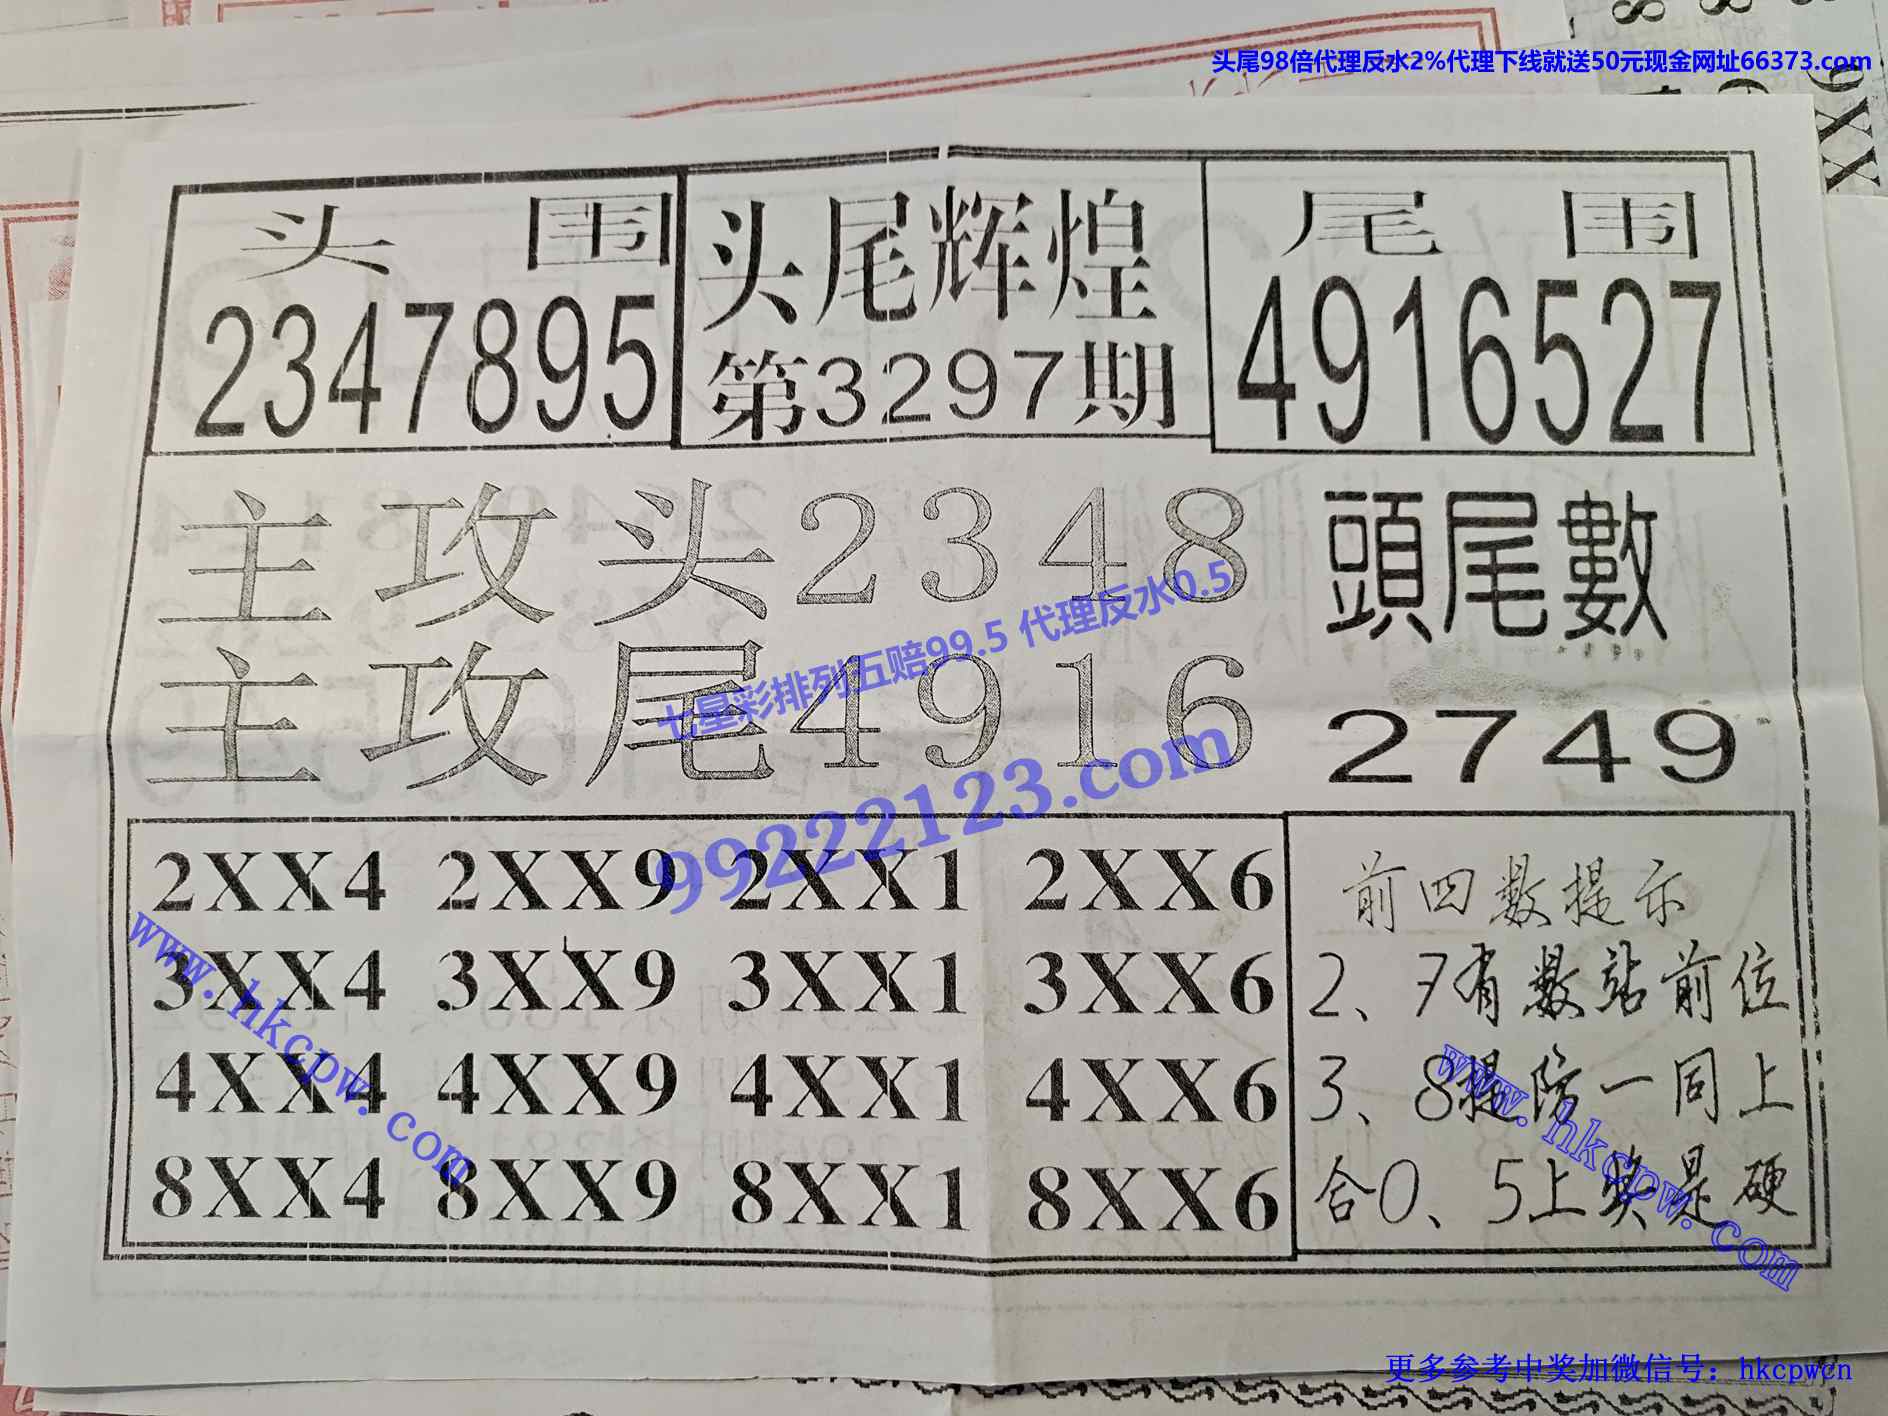 头尾98倍代理反水2%代理下线就送50元现金网址66373.com
9XX
头围
2347895
头尾辉煌
第3297期
尾围
4916527
主攻头2348
主攻尾4916
頭尾數
2749
七星彩排列五赔99.5 代理反水0.5
99222123.com
2XX4 2XX9 2XX1 2XX6
3XX4 3XX9 3XX1 3XX6
4XX4 4XX9 4XX1 4XX6
8XX4 8XX9 8XX1 8XX6
前四数提示
2、7有数站前位
3、8提防一同上
合0、5上奖是硬
www.hkcpw.com
www.hkcpw.com
更多参考中奖加微信号：hkcpwcn